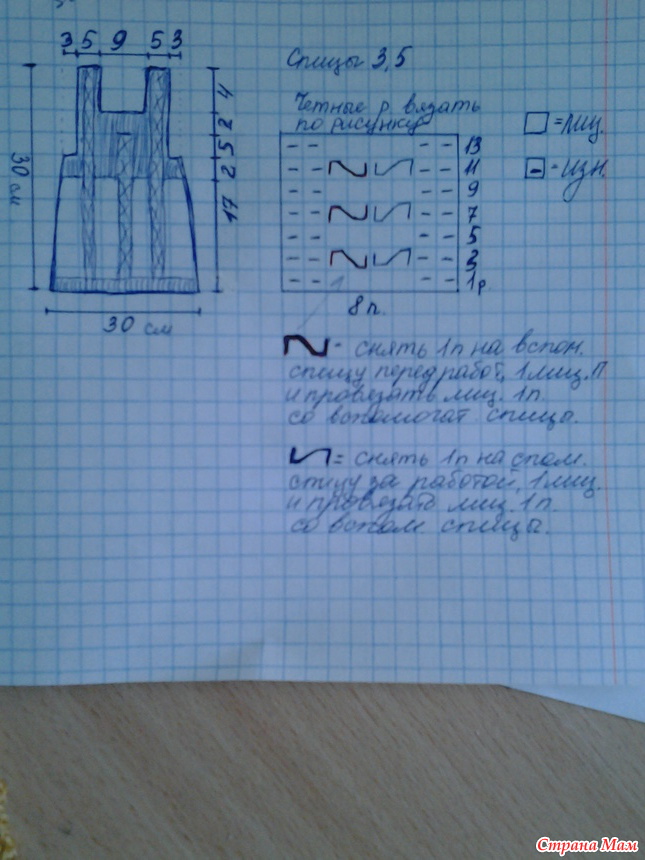 3 5 9 5 3
4
2
5
2
17
30 см
30 см
Спицы 3,5
Четные р. вязать
по рисунку
13
11
9
7
5
3
1р.
8п.
= лиц.
- изн.
- снять 1п на вспом.
спицу перед работ, 1 лиц. П
и провязать лиц. 1п.
со вспомогат. спицы.
= снять 1п на спом.
спицу за работой, 1 лиц.
и провязать лиц. 1п.
со вспом. спицы.
Страна Мам